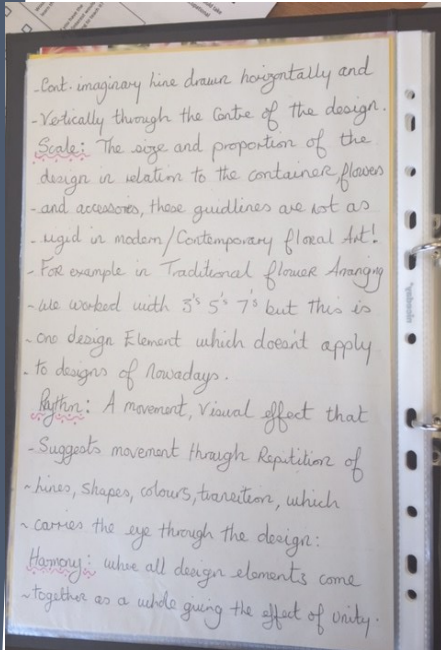 - Cont. imaginary line drawn horizontally and
- Vertically through the Centre of the design.
Scale: The size and proportion of the
design in relation to the container flowers
- and accessories, these guidlines are not as
- rigid in modern/Contemporary floral Art!
- For example in Traditional flower Arranging
- we worked with 3's 5's 7's but this is
- one design Element which doesn't apply
- to designs of Nowadays.
Raythm: A movement, Visual effect that
- Suggests movement through Repitition of
~ lines, Shapes, colours, transition, which
~ carries the eye through the design:
Harmony: where all design elements come
~ together as a whole giving the effect of Unity.